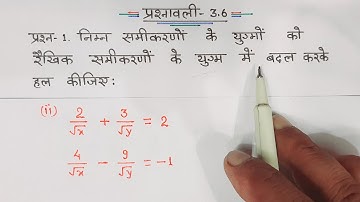 प्रश्नावली- 3.6
प्रश्न- 1. निम्न समीकरणों के युग्मों को
रैखिक समीकरणों के युग्म में बदल करके
हल कीजिए:
(ii) 2/√x + 3/√y = 2
4/√x - 9/√y = -1